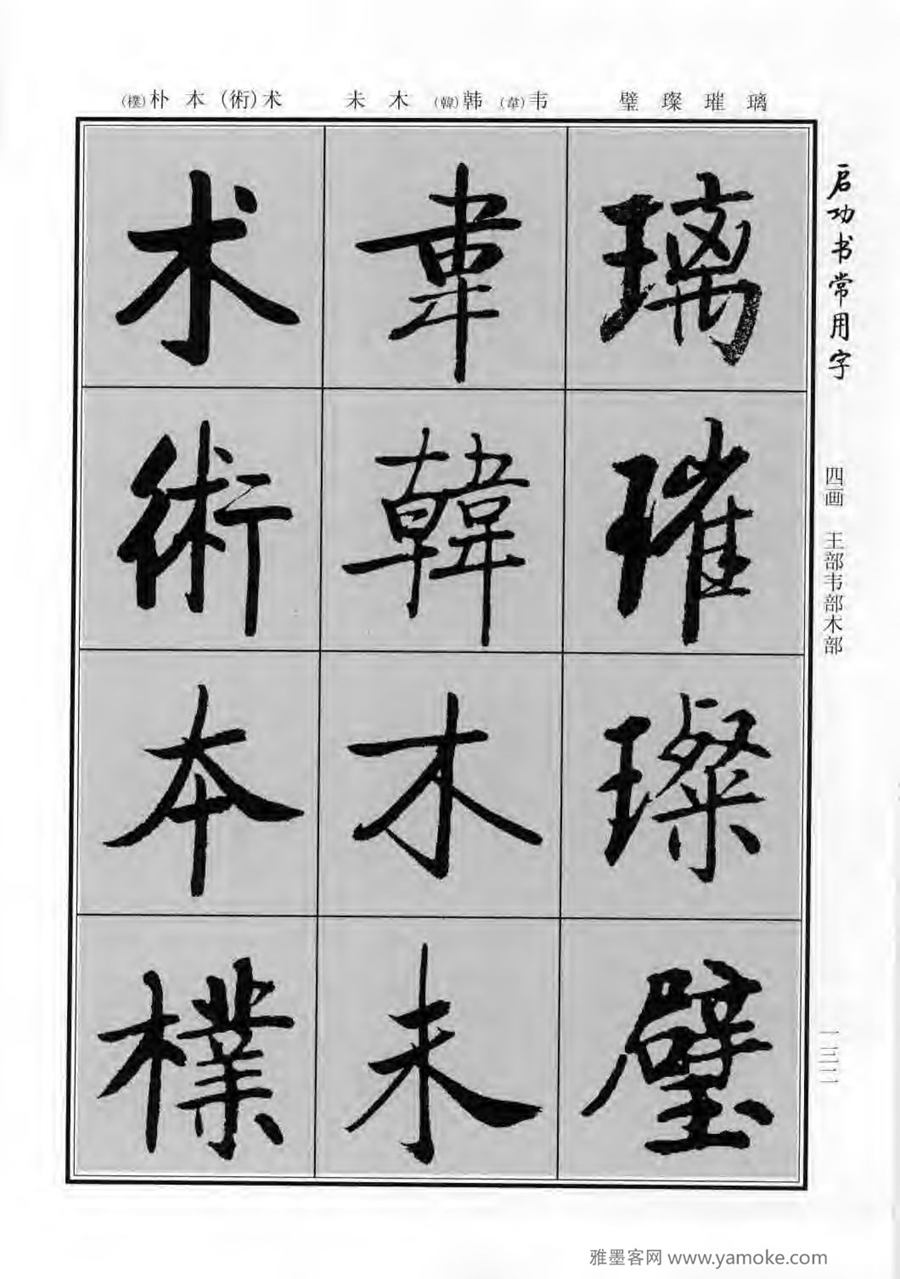 启功书常用字
四画 王部韦部木部
一三二
璃 璀 璨 璧
韦(韋) 韩(韓) 木 未
术(術) 本 朴(樸)
璃
璀
璨
璧
韋
韓
木
未
术
術
本
樸
雅墨客网 www.yamoke.com